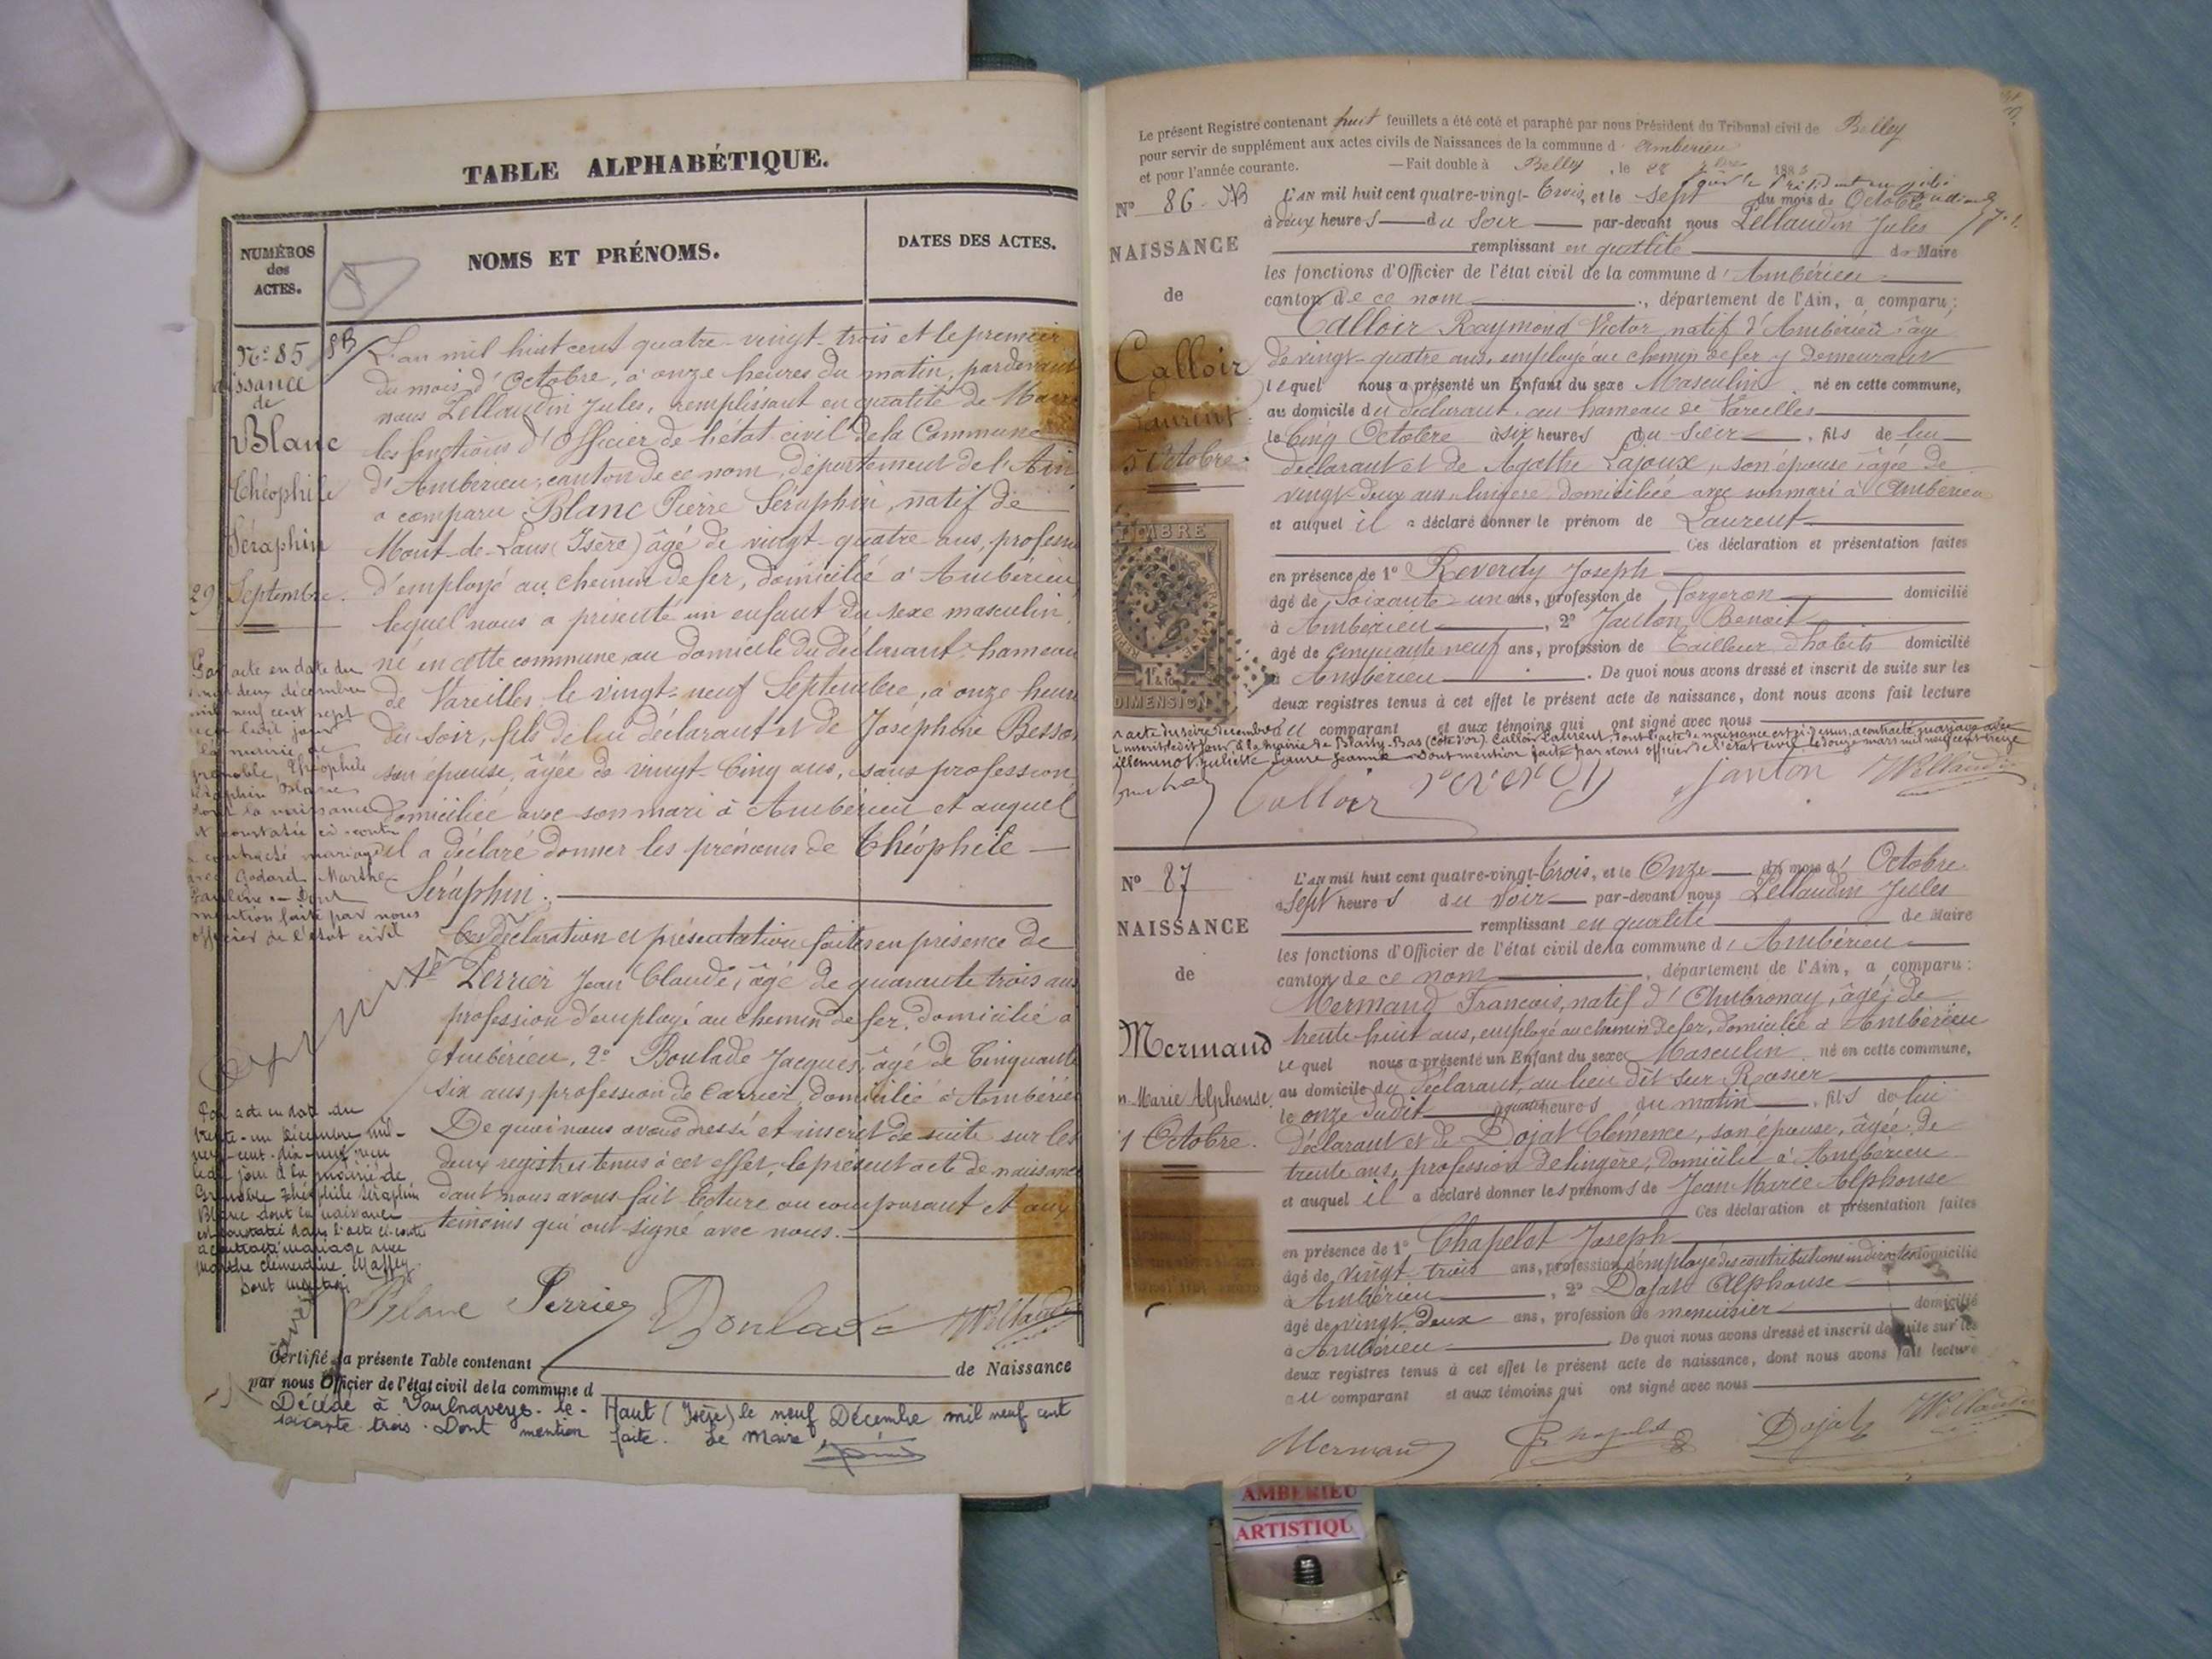 TABLE ALPHABÉTIQUE.
NUMÉROS
des
ACTES.
NOMS ET PRÉNOMS.
DATES DES ACTES.
N° 85
issance
de
Blanc
Théophile
Séraphin
29 Septembre.
L'an mil huit cent quatre-vingt-trois et le premier
du mois d'Octobre, à onze heures du matin, pardevant
nous Lellaudin Jules, remplissant en qualité de Maire
les fonctions d'Officier de l'état civil de la Commune
d'Ambérieu, canton de ce nom, département de l'Ain
a comparu Blanc Pierre Séraphin, natif de
Mont-de-Lans (Isère) âgé de vingt-quatre ans, profession
d'employé au chemin de fer, domicilié à Ambérieu
lequel nous a présenté un enfant du sexe masculin,
né en cette commune, au domicile du déclarant, hameau
de Vareilles, le vingt-neuf Septembre, à onze heures
du soir, fils de lui déclarant et de Joséphine Besson
son épouse, âgée de vingt-cinq ans, sans profession
domiciliée avec son mari à Ambérieu et auquel
il a déclaré donner les prénoms de Théophile
Séraphin.
Ces déclaration et présentation faites en présence de
1° Perrier Jean Claude, âgé de quarante trois ans
profession d'employé au chemin de fer, domicilié à
Ambérieu, 2° Boulade Jacques, âgé de Cinquante
six ans, profession de Carrier, domicilié à Ambérieu
De quoi nous avons dressé et inscrit de suite sur les
deux registres tenus à cet effet, le présent acte de naissance
dont nous avons fait lecture au comparant et aux
témoins qui ont signé avec nous.
Par acte en date du
vingt deux décembre
mil neuf cent sept
reçu ledit jour
la mairie de
Grenoble, Théophile
Séraphin Blanc
dont la naissance
est constatée ci-contre
a contracté mariage
avec Godard Marthe
Pauline. Dont
mention faite par nous
officier de l'état civil
Par acte en date du
trente-un Décembre mil-
neuf-cent-dix-neuf reçu
ledit jour à la mairie de
Grenoble Théophile Séraphin
Blanc dont la naissance
est constatée dans l'acte ci-contre
a contracté mariage avec
Marthe Clémentine Maffey
Dont mention
Blanc Perrier Boulade
Certifié la présente Table contenant de Naissance
par nous Officier de l'état civil de la commune d
Décédé à Vaulnaveys-le-Haut (Isère) le neuf Décembre mil neuf cent
soixante trois. Dont mention faite. Le Maire,
Le présent Registre contenant huit feuillets a été coté et paraphé par nous Président du Tribunal civil de Belley
pour servir de supplément aux actes civils de Naissances de la commune d'Ambérieu
et pour l'année courante. —Fait double à Belley, le 28 7bre 1883
N° 86
NAISSANCE
de
Calloir
Laurent
5 Octobre.
TIMBRE
DIMENSION
L'AN mil huit cent quatre-vingt-trois, et le sept du mois de Octobre
à deux heures du soir par-devant nous Lellaudin Jules
remplissant en qualité de Maire
les fonctions d'Officier de l'état civil de la commune d'Ambérieu
canton de ce nom, département de l'Ain, a comparu;
Calloir Raymond Victor natif d'Ambérieu âgé
de vingt-quatre ans, employé au chemin de fer y demeurant
lequel nous a présenté un Enfant du sexe Masculin né en cette commune,
au domicile du déclarant, au hameau de Vareilles
le cinq Octobre à six heures du soir, fils de lui
déclarant et de Agathe Lajoux, son épouse, âgée de
vingt-deux ans, lingère domiciliée avec son mari à Ambérieu
et auquel il a déclaré donner le prénom de Laurent
Ces déclaration et présentation faites
en présence de 1° Reverdy Joseph
âgé de Soixante-un ans, profession de forgeron domicilié
à Ambérieu, 2° Janton Benoit
âgé de cinquante neuf ans, profession de tailleur d'habits domicilié
à Ambérieu. De quoi nous avons dressé et inscrit de suite sur les
deux registres tenus à cet effet le présent acte de naissance, dont nous avons fait lecture
au comparant et aux témoins qui ont signé avec nous
Calloir Reverdy Janton
N° 87
NAISSANCE
de
Mermand
n Marie Alphonse,
1 Octobre.
L'AN mil huit cent quatre-vingt-trois, et le Onze du mois d'Octobre
à sept heures du soir par-devant nous Lellaudin Jules
remplissant en qualité de Maire
les fonctions d'Officier de l'état civil de la commune d'Ambérieu
canton de ce nom, département de l'Ain, a comparu:
Mermand François, natif d'Ambronay, âgé de
trente huit ans, employé au chemin de fer, domicilié à Ambérieu
lequel nous a présenté un Enfant du sexe Masculin né en cette commune,
au domicile du déclarant, au lieu dit sur Rosier
le onze dudit à quatre heures du matin, fils de lui
déclarant et de Dojat Clémence, son épouse, âgée de
trente ans, profession de lingère, domiciliée à Ambérieu
et auquel il a déclaré donner les prénoms de Jean Marie Alphonse
Ces déclaration et présentation faites
en présence de 1° Chapelot Joseph
âgé de vingt-trois ans, profession d'employé des contributions indirectes domicilié
à Ambérieu, 2° Dojat Alphonse
âgé de vingt-deux ans, profession de menuisier domicilié
à Ambérieu. De quoi nous avons dressé et inscrit de suite sur les
deux registres tenus à cet effet le présent acte de naissance, dont nous avons fait lecture
au comparant et aux témoins qui ont signé avec nous
Mermand Dojat
AMBERIEU
ARTISTIQU